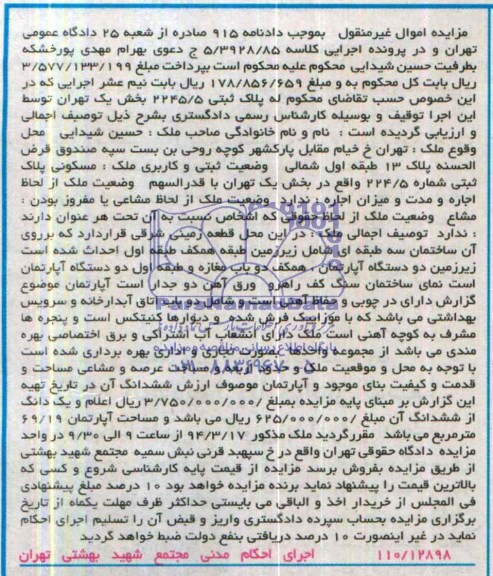 مزایده اموال غیرمنقول بموجب دادنامه 915 صادره از شعبه 25 دادگاه عمومی
تهران و در پرونده اجرایی کلاسه 5/3928/85 ج دعوی بهرام مهدی پورخشکه
بطرفیت حسین شیدایی محکوم علیه محکوم است بپرداخت مبلغ 3/577/133/199
ریال بابت کل محکوم به و مبلغ 178/856/659 ریال بابت نیم عشر اجرایی که در
این خصوص حسب تقاضای محکوم له پلاک ثبتی 2245/5 بخش یک تهران توسط
این اجرا توقیف و بوسیله کارشناس رسمی دادگستری بشرح ذیل توصیف اجمالی
و ارزیابی گردیده است : نام و نام خانوادگی صاحب ملک : حسین شیدایی محل
وقوع ملک : تهران خ خیام مقابل پارکشهر کوچه روحی بن بست سپه صندوق قرض
الحسنه پلاک 13 طبقه اول شمالی وضعیت ثبتی و کاربری ملک : مسکونی پلاک
ثبتی شماره 224/5 واقع در بخش یک تهران با قدرالسهم وضعیت ملک از لحاظ
اجاره و مدت و میزان اجاره : ندارد وضعیت ملک از لحاظ مشاعی یا مفروز بودن :
مشاع وضعیت ملک از لحاظ حقوقی که اشخاص نسبت به آن تحت هر عنوان دارند
: ندارد توصیف اجمالی ملک : در این محل قطعه زمینی شرقی قراردارد که برروی
آن ساختمان سه طبقه ای شامل زیرزمین طبقه همکف طبقه اول احداث شده است
زیرزمین دو دستگاه آپارتمان ، همکف دو باب مغازه و طبقه اول دو دستگاه آپارتمان
است نمای ساختمان سنگ کف راهرو ورق آهن دو جدار است آپارتمان موضوع
گزارش دارای در چوبی و حفاظ آهنی است و شامل دو باب اتاق آبدارخانه و سرویس
بهداشتی می باشد که با موزاییک فرش شده دیوارها کنیتکس است و پنجره ها
مشرف به کوچه آهنی است ملک دارای انشعاب آب اشتراکی و برق اختصاصی بهره
مندی می باشد از مجموعه واحدها بصورت تجاری و اداری بهره برداری شده است
با توجه به محل و موقعیت ملک و حدود اربعه و مساحت عرصه و مشاعی مساحت و
قدمت و کیفیت بنای موجود و آپارتمان موصوف ارزش ششدانگ آن در تاریخ تهیه
این گزارش بر مبنای پایه مزایده بمبلغ 3/750/000/000/ ریال اعلام و یک دانگ
از ششدانگ آن مبلغ 625/000/000/ ریال می باشد و مساحت آپارتمان 69/19
مترمربع می باشد مقررگردید ملک مذکور 94/3/17 از ساعت 9 الی 9/30 در واحد
مزایده دادگاه حقوقی تهران واقع در خ سپهبد قرنی نبش سمیه مجتمع شهید بهشتی
از طریق مزایده بفروش برسد مزایده از قیمت پایه کارشناسی شروع و کسی که
بالاترین قیمت را پیشنهاد نماید برنده مزایده خواهد بود 10 درصد مبلغ پیشنهادی
فی المجلس از خریدار اخذ و الباقی می بایستی حداکثر ظرف مهلت یکماه از تاریخ
برگزاری مزایده بحساب سپرده دادگستری واریز و قبض آن را تسلیم اجرای احکام
نماید در غیر اینصورت 10 درصد دریافتی بنفع دولت ضبط خواهد گردید
110/12898 اجرای احکام مدنی مجتمع شهید بهشتی تهران